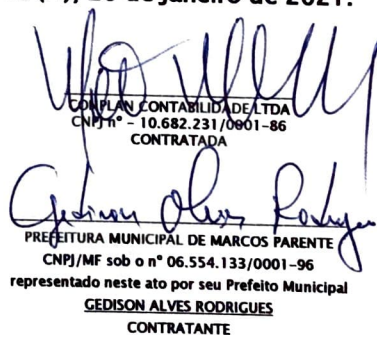 de janeiro de 2021.
CONPLAN CONTABILIDADE LTDA
CNPJ nº - 10.682.231/0001-86
CONTRATADA
Gedison Alves Rodrigues
PREFEITURA MUNICIPAL DE MARCOS PARENTE
CNPJ/MF sob o nº 06.554.133/0001-96
representado neste ato por seu Prefeito Municipal
GEDISON ALVES RODRIGUES
CONTRATANTE